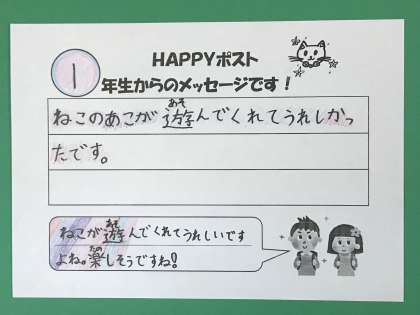 HAPPYポスト
1
年生からのメッセージです！
ねこのあこが遊んでくれてうれしかっ
たです。
ねこが遊んでくれてうれしいです
よね。楽しそうですね!